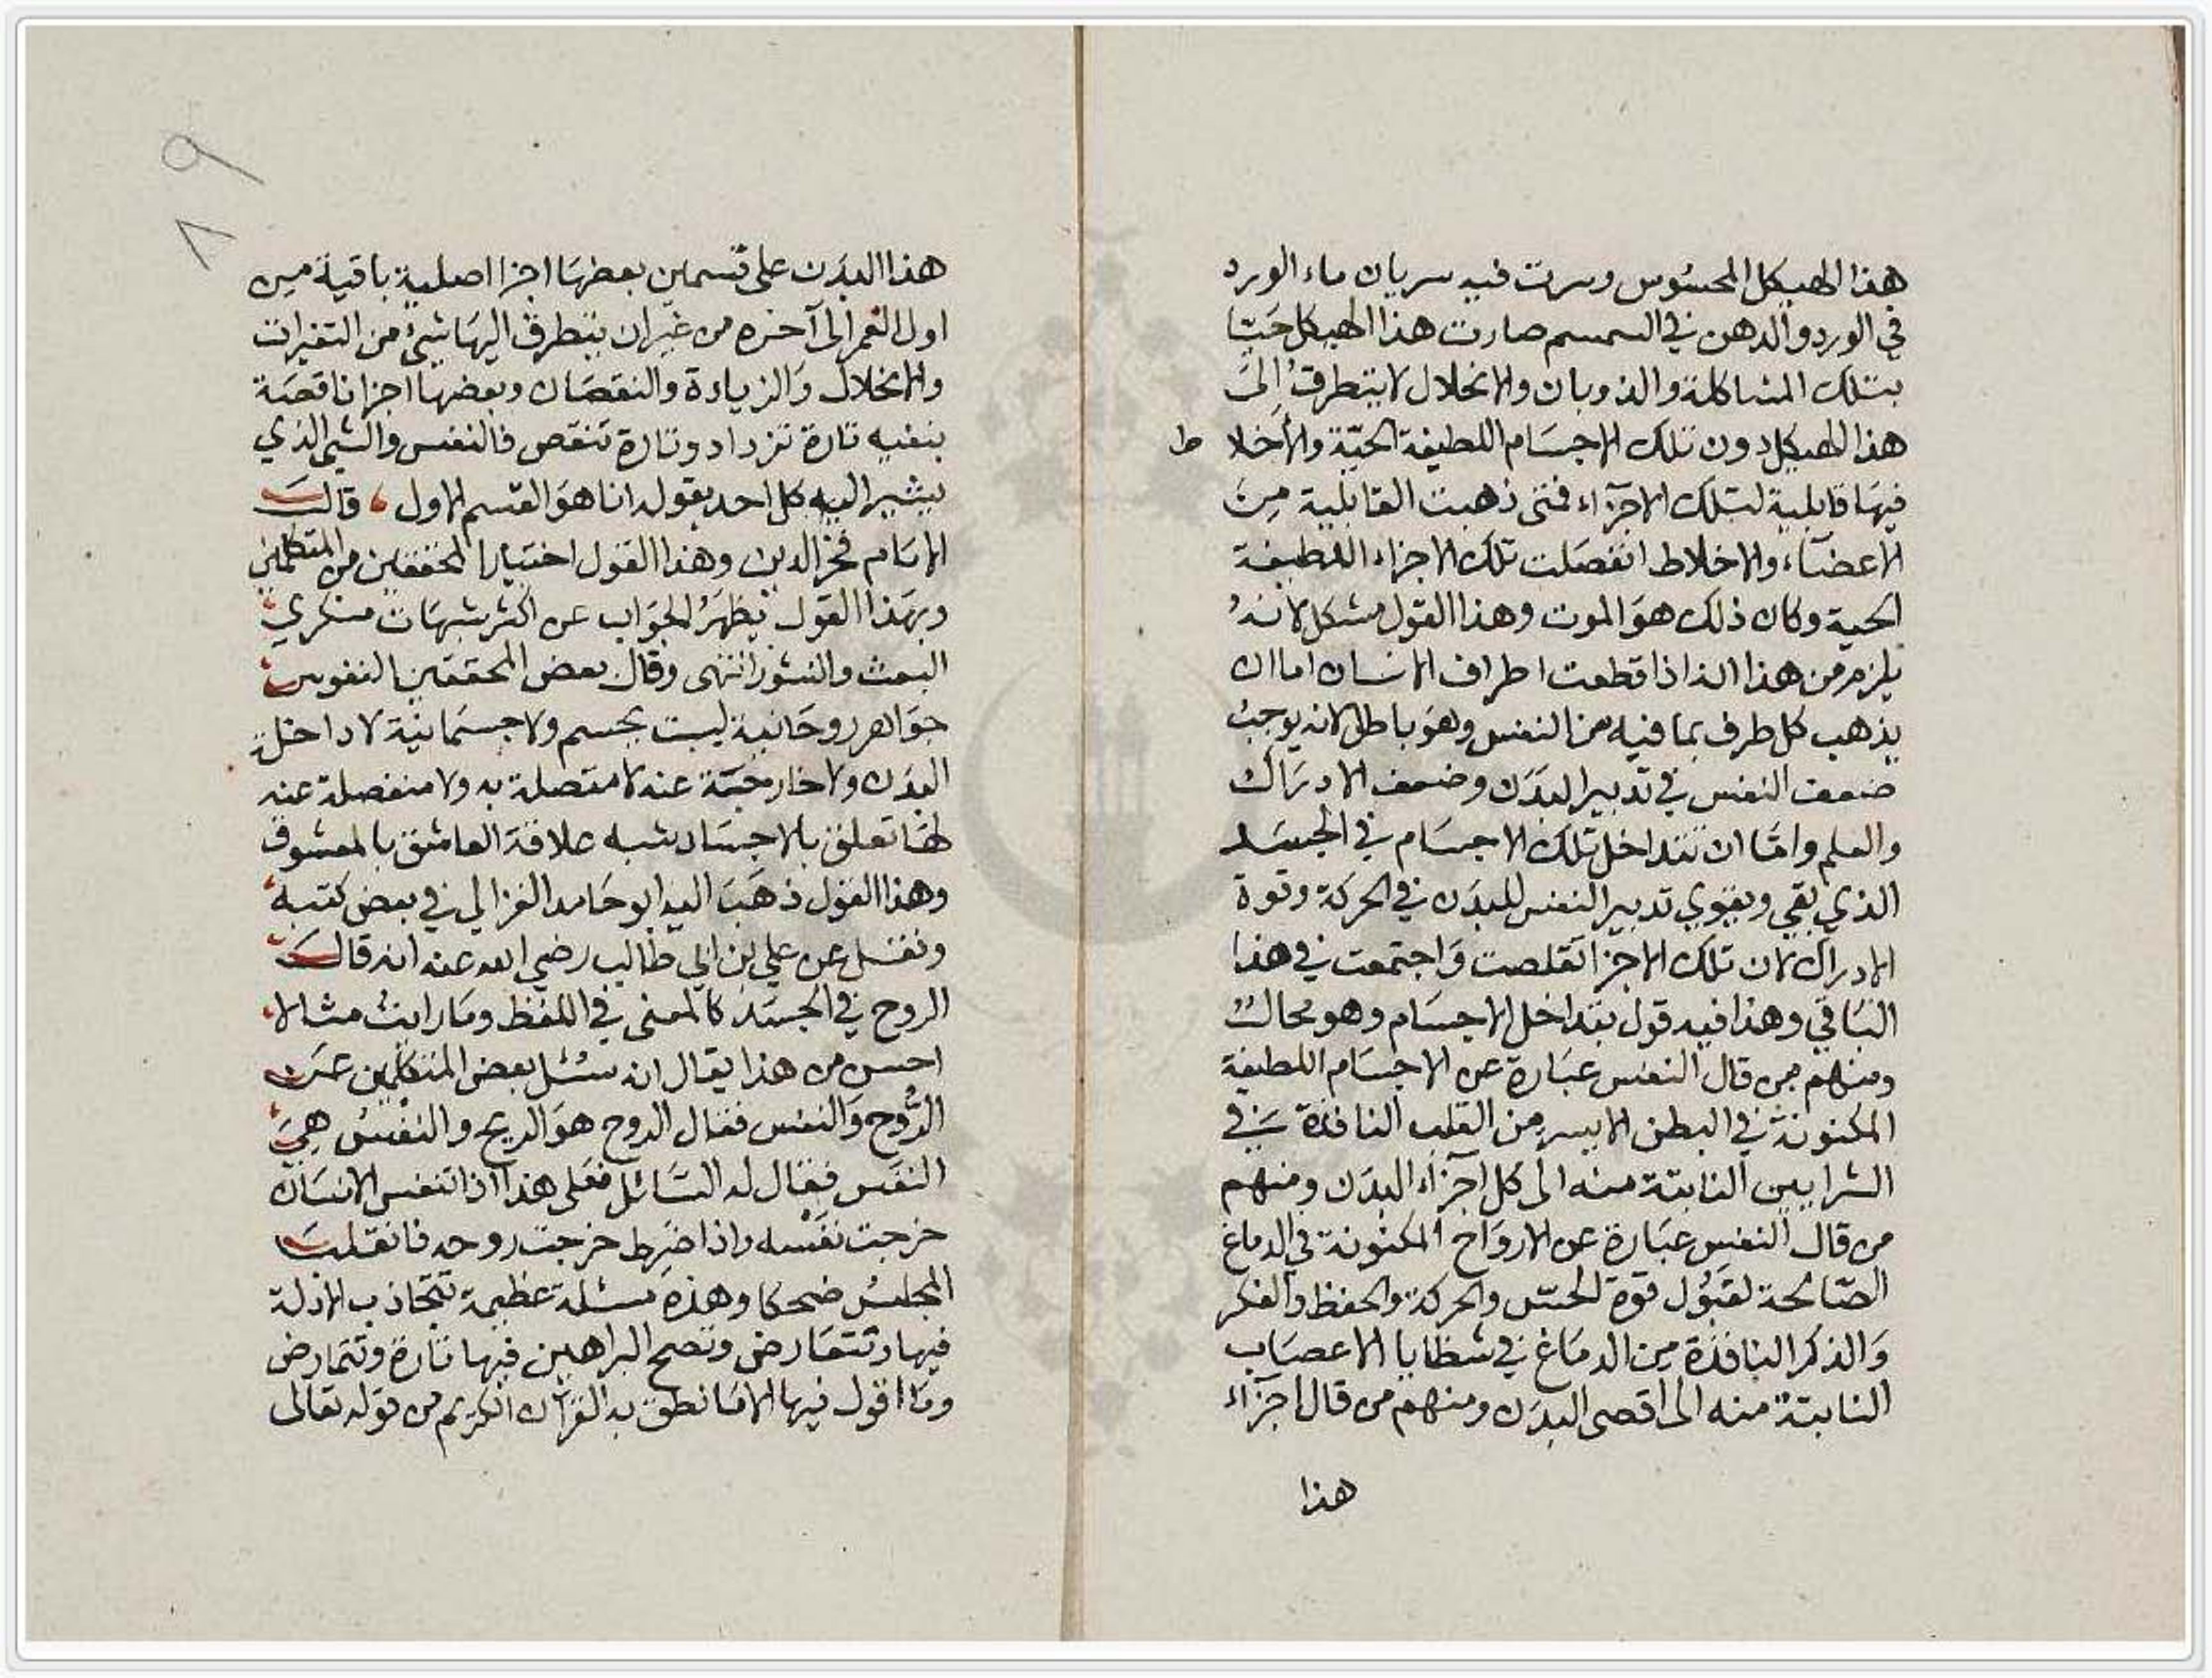 هذا الهيكل المحسوس وسرت فيه سريان ماء الورد
في الورد والدهن في السمسم صارت هذا الهيكل حيا
بتلك المشاكلة والذوبان والانحلال لا يتطرق إلى
هذا الهيكل دون تلك الاجسام اللطيفة الحية والأخلا ط
فيها قابلية لتلك الاجزاء فمتى ذهبت القابلية من
الاعضاء والاخلاط انفصلت تلك الاجزاء اللطيفة
الحية وكان ذلك هو الموت وهذا القول مشكل لانه
يلزم من هذا انه اذا قطعت اطراف الانسان اما ان
يذهب كل طرف بما فيه من النفس وهو باطل لانه يوجب
ضعف النفس في تدبير البدن وضعف الادراك
والعلم واما ان تتداخل تلك الاجسام في الجسد
الذي بقي ويقوي تدبير النفس للبدن في الحركة وقوة
الادراك لان تلك الاجزا تقلصت واجتمعت في هذا
الباقي وهذا فيه قول بتداخل الاجسام وهو محال
ومنهم من قال النفس عبارة عن الاجسام اللطيفة
المكنونة في البطن الايسر من القلب النافذة في
الشرايين النابتة منه الى كل اجزاء البدن ومنهم
من قال النفس عبارة عن الارواح المكنونة في الدماغ
الصالحة لقبول قوة الحس والحركة والحفظ والفكر
والذكر النافذة من الدماغ في شظايا الاعصاب
النابتة منه الى اقصى البدن ومنهم من قال اجزاء
هذا
٨٩
هذا البدن على قسمين بعضها اجزا اصلية باقية من
اول العمر الى آخره من غير ان يتطرق اليها شيئ من التغيرات
والانحلال والزيادة والنقصان وبعضها اجزا ناقصة
بنفيه تارة تزداد وتارة تنقص فالنفس والشي الذي
يشير اليه كل احد بقوله انا هو القسم الاول قال
الامام فخر الدين وهذا القول اختيار المحققين من المتكلمين
وبهذا القول يظهر الجواب عن اكثر شبهات منكري
البعث والنشور انتهى وقال بعض المحققين النفوس
جواهر روحانية ليست بجسم ولا جسمانية لا داخلة
البدن ولا خارجة عنه لا متصلة به ولا منفصلة عنه
لها تعلق بالاجساد يشبه علاقة العاشق بالمعشوق
وهذا القول ذهب اليه ابو حامد الغزالي في بعض كتبه
ونقل عن علي بن ابي طالب رضي الله عنه انه قال
الروح في الجسد كالمعنى في اللفظ وما رايت مثالا
احسن من هذا يقال انه سئل بعض المتكلمين عن
الروح والنفس فقال الروح هو الريح والنفس هي
النفس فقال له السائل فعلى هذا اذا تنفس الانسان
خرجت نفسه واذا ضرط خرجت روحه فانقلب
المجلس ضحكا وهذه مسئلة عظيمة تتجاذب الادلة
فيها وتتعارض وتصح البراهين فيها تارة وتتمارض
وما اقول فيها الا ما نطق به القرآن الكريم من قوله تعالى